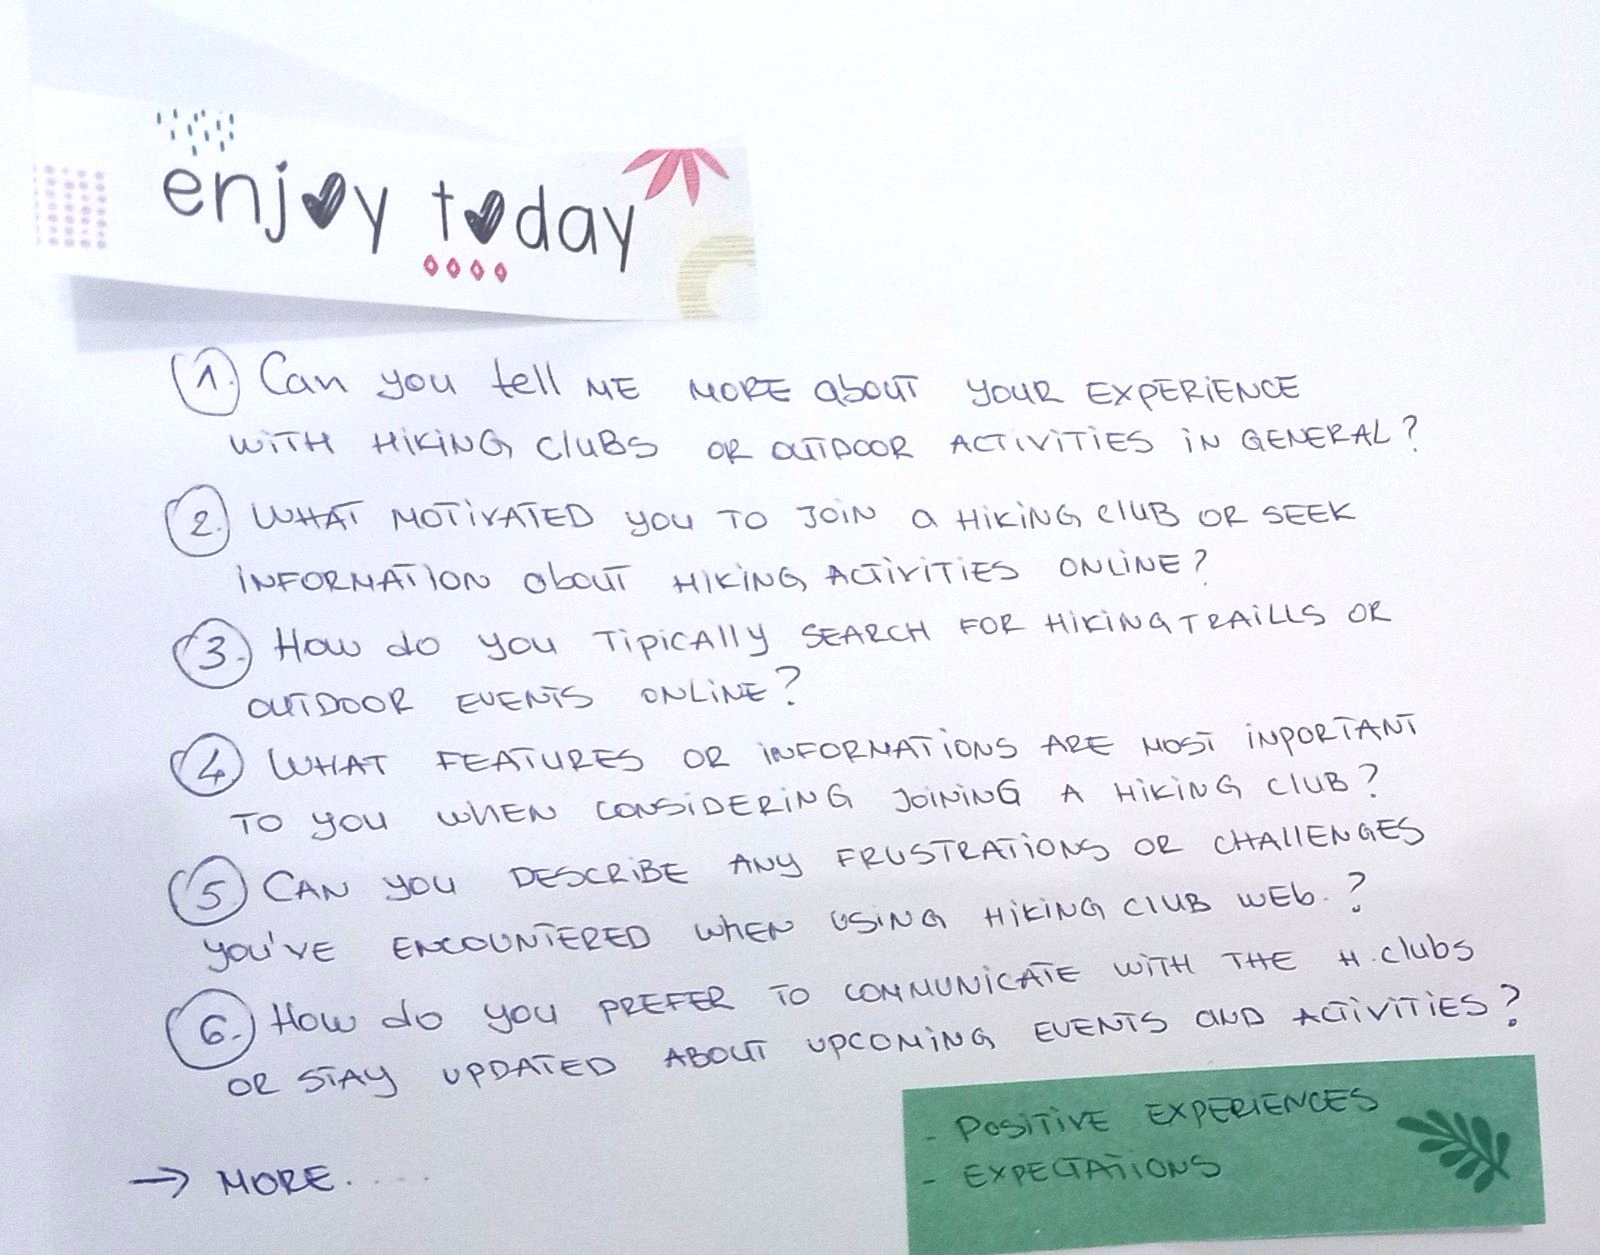 enjoy today
1. Can you tell ME MORE about YOUR EXPERIENCE
WITH HIKING Clubs OR OUTDOOR ACTIVITIES IN GENERAL?
2. WHAT MOTIVATED you TO JOIN a HIKING club OR SEEK
INFORMATION about HIKING ACTIVITIES ONLINE?
3. How do you TIPICALLY SEARCH FOR HIKING TRAILLS OR
OUTDOOR EVENTS ONLINE?
4. WHAT FEATURES OR INFORMATIONS ARE MOST INPORTANT
TO you WHEN CONSIDERING JOINING A HIKING CLUB?
5. CAN you DESCRIBE ANY FRUSTRATIONS OR CHALLENGES
you'VE ENCOUNTERED WHEN USING HIKING CLUB WEb.?
6. How do you PREFER TO COMMUNICATE WITH THE H.clubs
OR STAY UPDATED ABOUT UPCOMING EVENTS AND ACTIVITIES?
→ MORE.....
- POSITIVE EXPERIENCES
- EXPECTATIONS